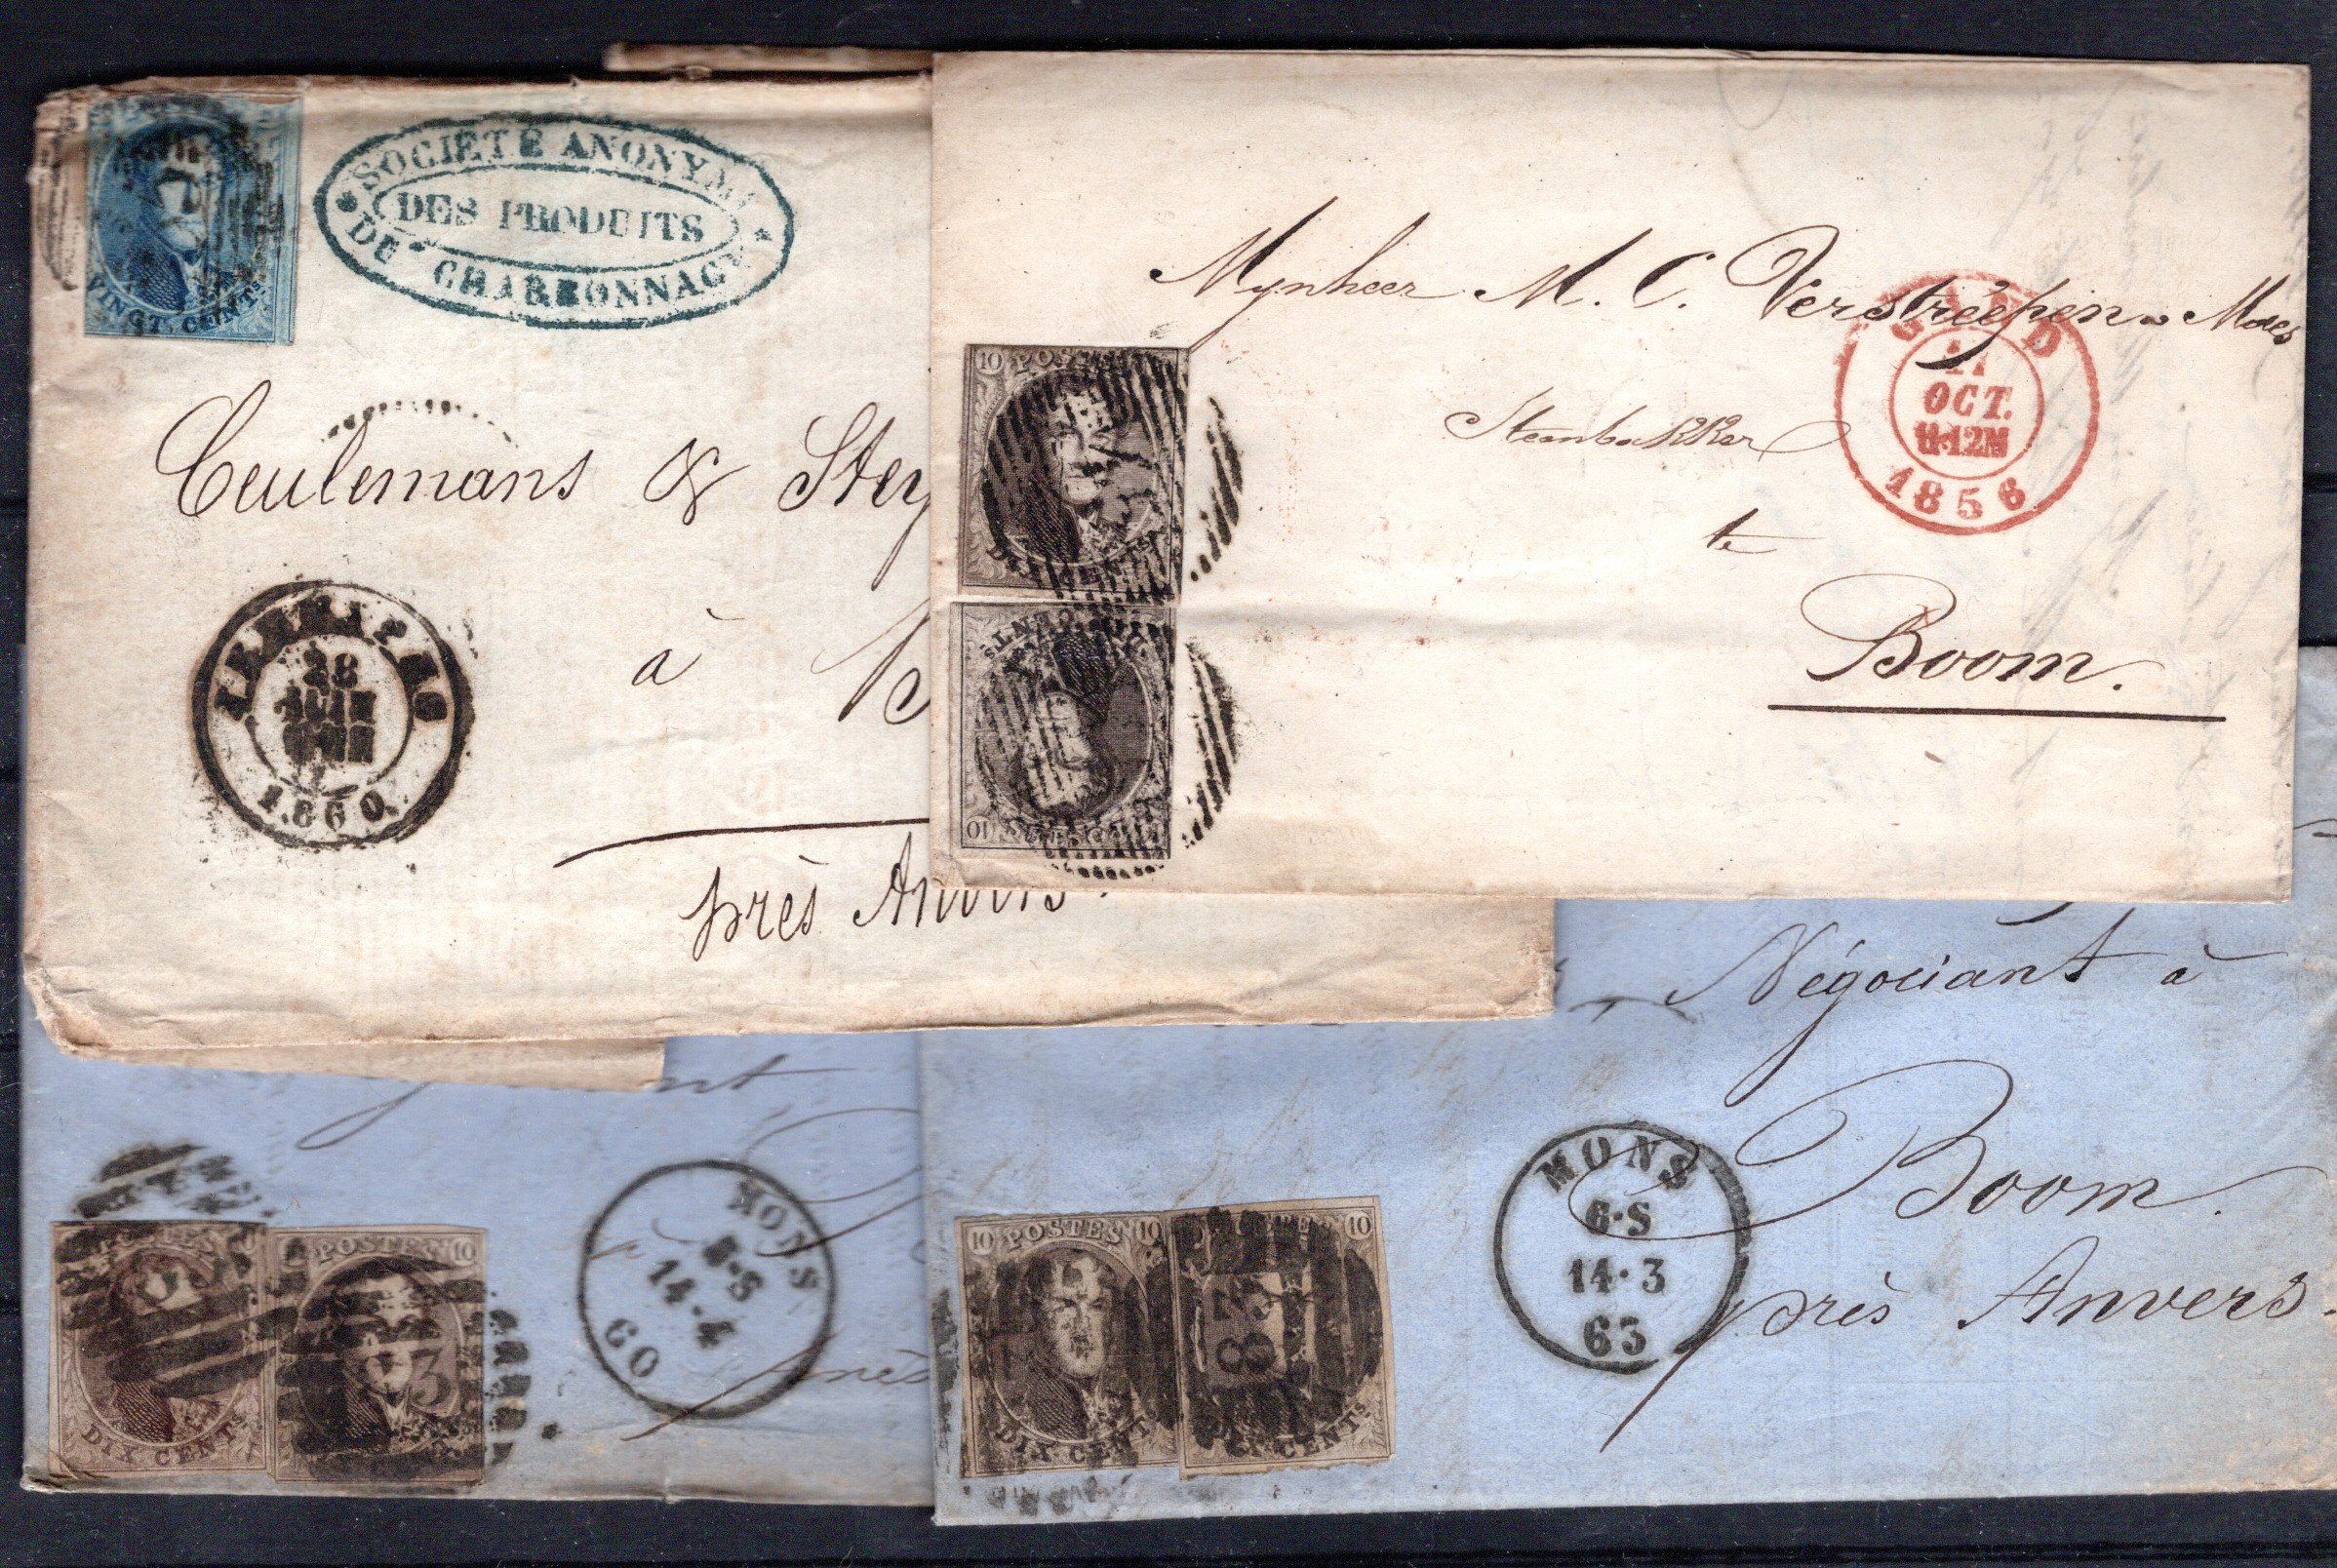 SOCIETE ANONYM
DES PRODUITS
DE CHARBONNAGE
VINGT CENTS
Ceulemans & Stey
à
près Anvers
JEMMAPES
28
JUIN
1860
Mynheer M. C. Verstreepen Maes
Steenbakker
te
Boom.
GAND
17
OCT.
11-12M
1856
10 POSTES
DIX CENTS
CENTS
10 POSTES
Négociant à
Boom.
près Anvers.
MONS
6-S
14-3
63
10 POSTES 10
DIX CENTS
10
83
CENTS
MONS
14-4
60
POSTES
DIX CENTS
POSTES 10